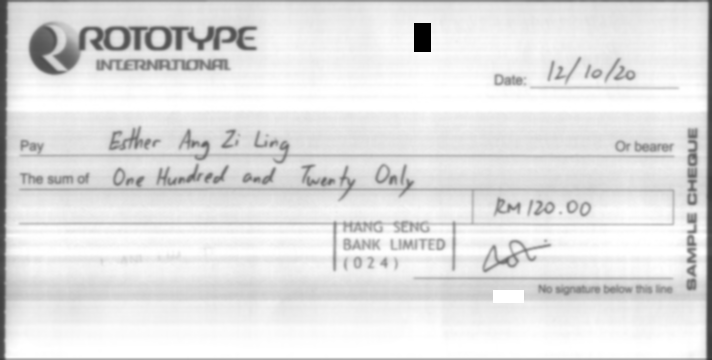 ROTOTYPE
INTERNATIONAL
Date: 12/10/20
Pay Esther Ang Zi Ling Or bearer
The sum of One Hundred and Twenty Only
RM 120.00
HANG SENG
BANK LIMITED
(024)
No signature below this line
SAMPLE CHEQUE